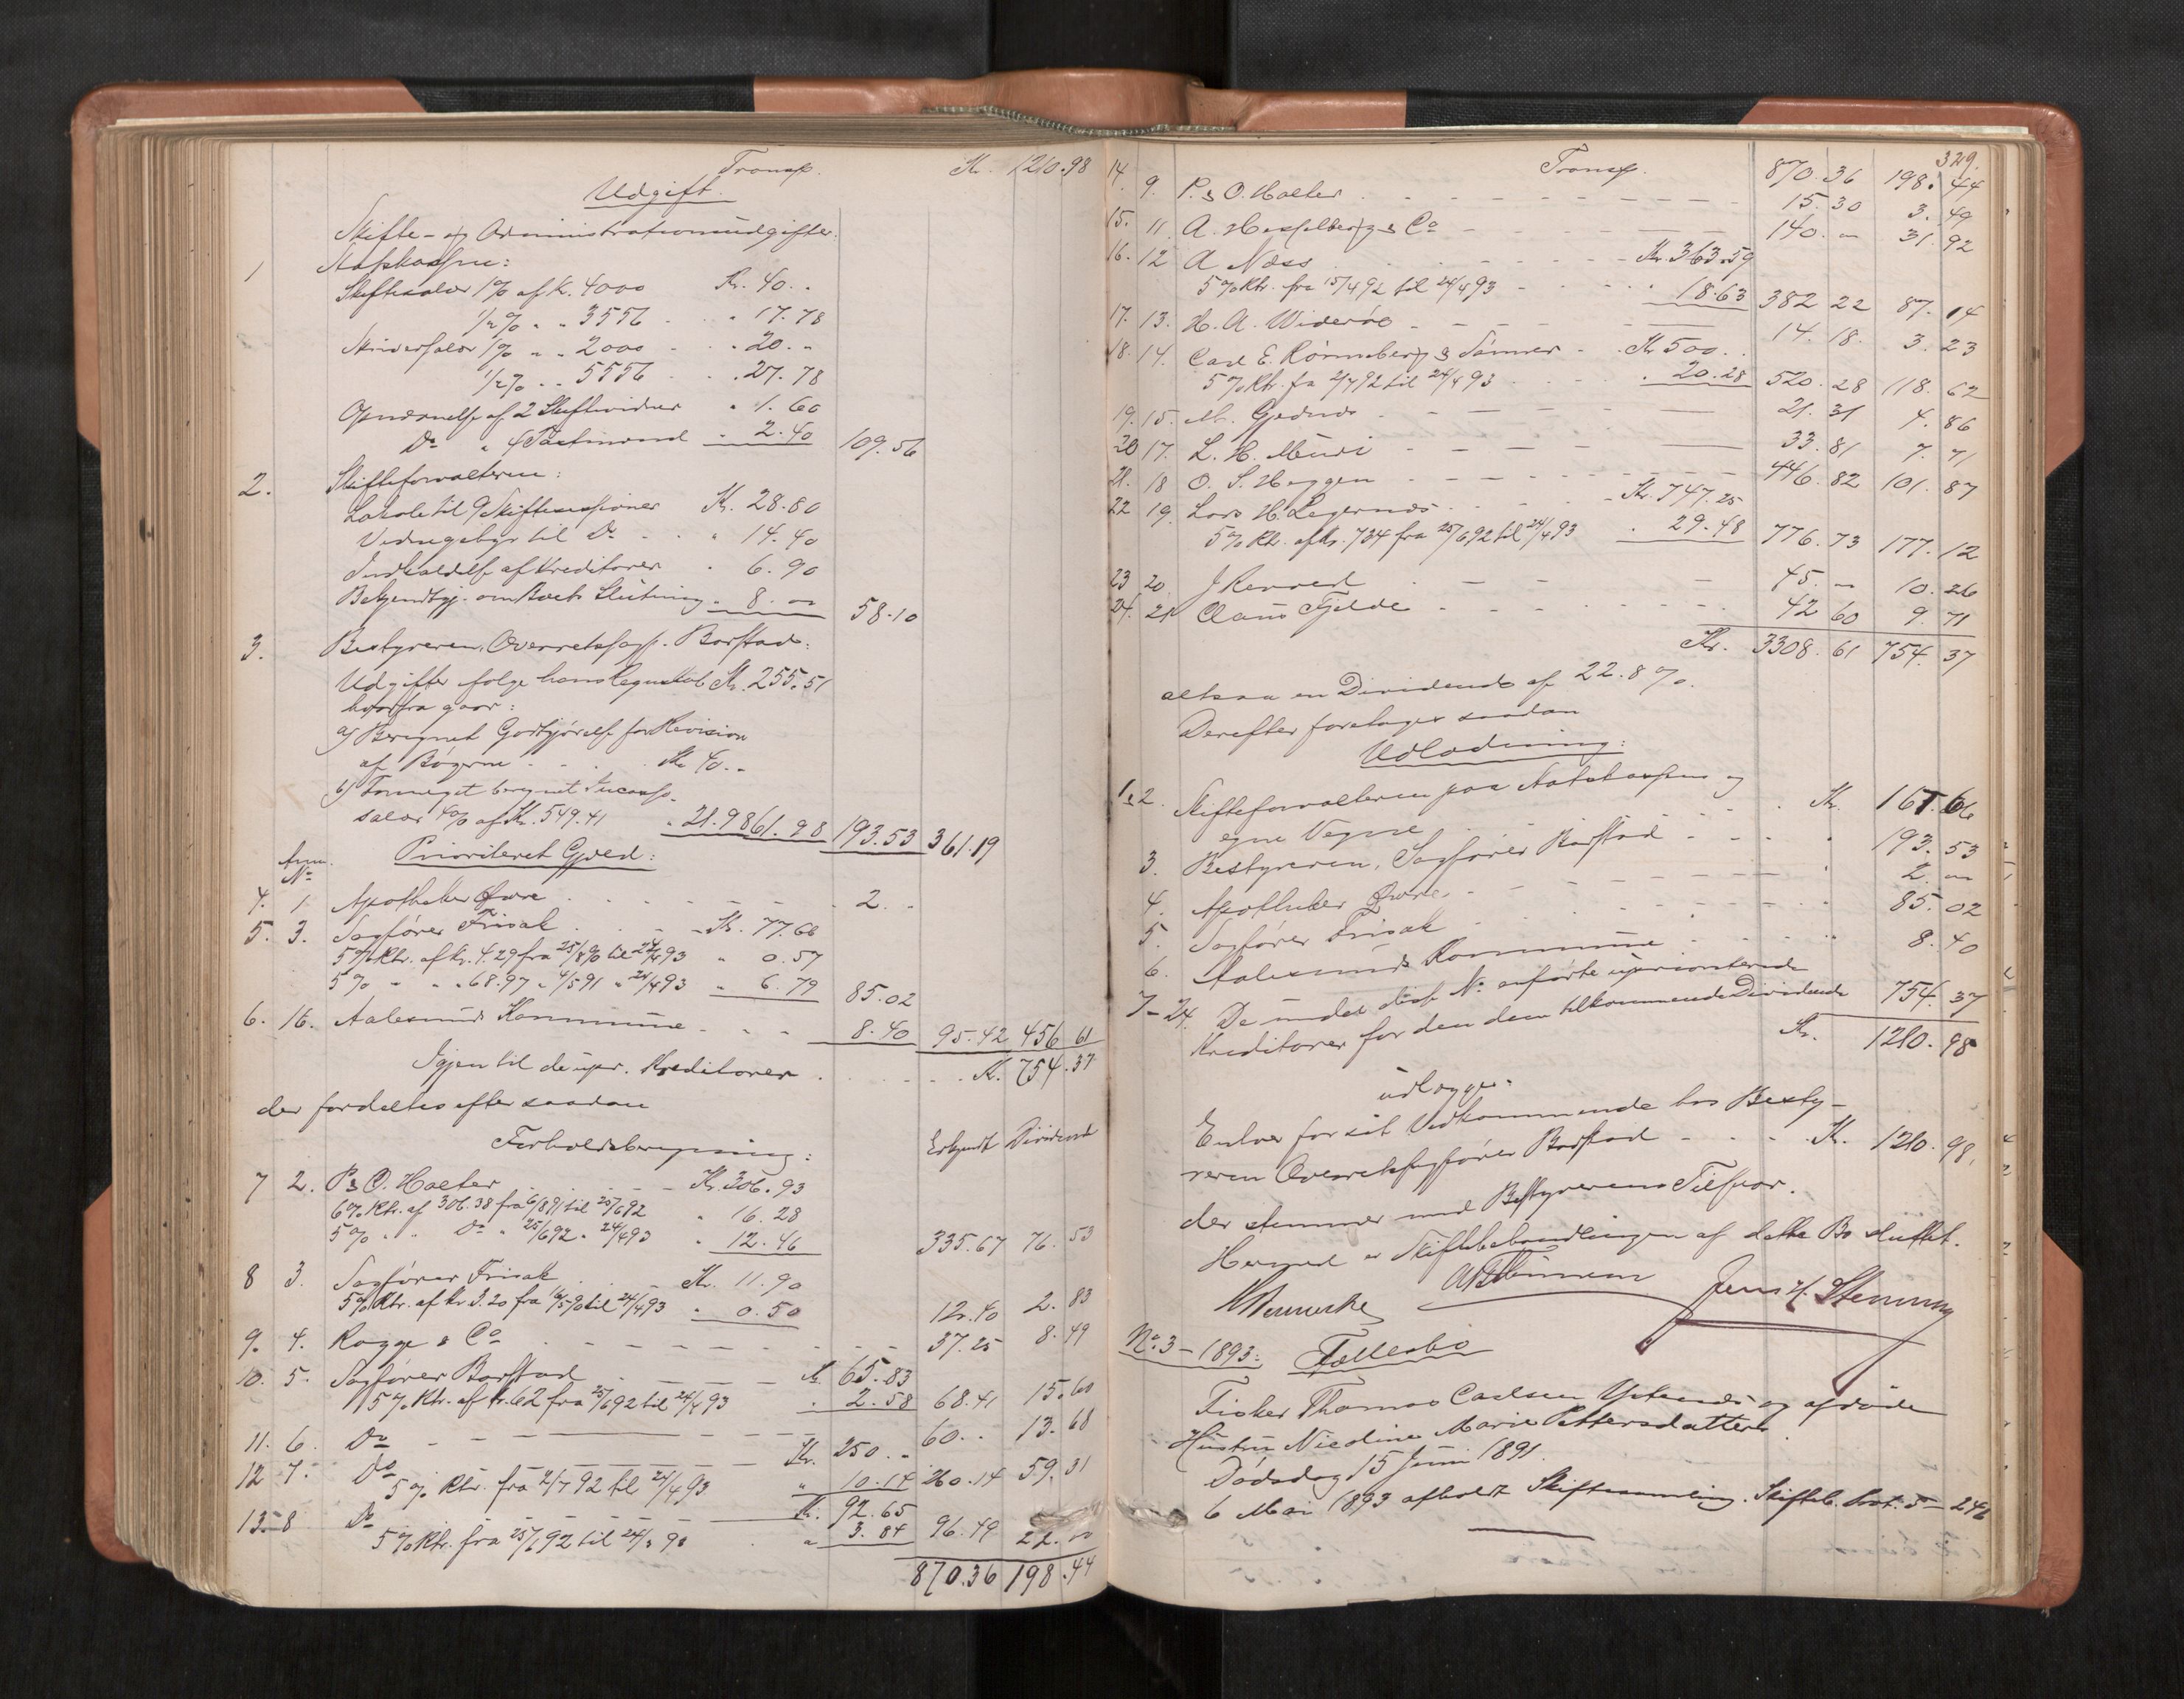 Transp. Kr. 1210.98
Udgift.
Skifte- og Administrationsudgifter:
1 Statskassen:
Skiftesalær 1% af K. 4000 Kr. 40..
1/2% " " 3556 . . " 17.78
1% " " 2000 . . " 20.-
1/2% " " 5556 . " 27.78
af 2 Skiftevidner " 1.60
Do " 4 " 2.40 109.56
2. Skifteforvalteren:
Lokale til 9 Skiftesessioner Kr. 28.80
til Do . . " 14.40
Indkaldelse af Kreditorer " 6.90
Bekjendtgj. om Boets Slutning " 8.- 58.10
3. Bestyreren, Overretssagf. Borstad:
Udgifter følge hans Regnskab Kr. 255.51
hvorfra gaar:
a) Beregnet Godtgjørelse for Revision
af Bøgerne . . . Kr. 40.-
b) Formeget beregnet Incasso-
salær 4% af Kr. 549.41 " 21.98 61.98 193.53 361.19
Anm. No Prioriteret Gjæld:
4. 1. Apotheker Øwre . . . . . . . 2. -
5. 3. Sagfører Frisak . . . . Kr. 77.66
5% Rtr. af Kr. 4.29 fra 25/8 90 til 24/4 93 " 0.57
5% " " " 68.97 " 4/5 91 " 24/4 93 " 6.79 85.02
6. 16. Aalesunds Kommune . . . 8.40 95.42 456 61
Igjen til de upr. Kreditorer . . . . . . Kr. 754.37
der fordeltes efter saadan
Forholdsberegning: Erkjendt Dividende
7 2. P. & O. Holter . . . . Kr. 306.93
6% Rtr. af 306.38 fra 6/8 91 til 25/6 92 " 16.28
5% " " Do " 25/6 92 " 24/4 93 " 12.46 335.67 76.53
8 3. Sagfører Frisak . . . Kr. 11.90
5% Rtr. af Kr. 3.20 fra til 24/4 93 " 0.50 12.40 2.83
9. 4. Rogge & Co . . . . . . . . . 37.25 8.49
10. 5. Sagfører Borstad . . . . . Kr. 65.83
5% Rtr. af Kr. 62 fra 25/6 92 til 24/4 93 . " 2.58 68.41 15.60
11. 6. Do . . . . . . . . 60. - 13.68
12 7. Do . . . . . . Kr. 250. -
5% Rtr. fra 2/7 92 til 24/4 93 " 10.14 260.14 59.31
13 8 Do . . . . . . Kr. 92.65
5% Rtr. fra 25/6 92 til 24/4 93 " 3.84 96.49 22.00
870.36 198.44
329.
Transp. 870.36 198.44
14. 9. P. & O. Holter . . . . . . . . 15.30 3.49
15. 11. A. Hesselberg & Co . . . . . 140.- 31.92
16. 12 A Næss . . . . . . Kr. 363.59
5% Rtr. fra 15/4 92 til 24/4 93 . . . . 18.63 382 22 87.14
17. 13. H. A. Widerøe . . . . . . 14.18. 3.23
18. 14. Carl E. Rønneberg & Sønner . . Kr. 500..
5% Rtr. fra 2/7 92 til 24/4 93 . . . . 20.28 520.28 118.62
19. 15. M. Gjednes . . . . . . . 21.31 4.86
20 17. L. H. Meudi . . . . . . 33.81 7.71
21. 18 O. S. Haggen . . . . . . 446.82 101.87
22 19. Lars H. Legernæs . . . . Kr. 747.25
5% Rtr. af Kr. 734 fra 25/6 92 til 24/4 93 . 29.48 776.73 177.12
23 20. J Renved . . . . . 45.- 10.26
24. 21 Claus Fjelde . . . . . . . 42 60 9.71
Kr. 3308.61 754.37
altsaa en Dividende af 22.8%.
Derefter foretages saadan
Udlodning:
1 & 2. Skifteforvalteren paa Statskassens og
egne Vegne . . . . . . . Kr. 167.66
3. Bestyreren, Sagfører Borstad . . . . 193.53
4. Apotheker Øwre . . . . . . . . 2. -
5. Sagfører Frisak . . . . . . . . 85.02
6. Aalesunds Kommune . . . . . . 8.40
7 - 24. De under disse No anførte uprioriterede
Kreditorer for den dem tilkommende Dividende 754.37
Kr. 1210.98
udlægges
Enhver for sit Vedkommende hos Besty-
reren Overretssagfører Borstad . . . . Kr. 1210.98,
der stemmer med Bestyrerens Tilsvar.
Hermed er Skiftebehandlingen af dette Bo sluttet.
Jens H. Stenning
No 3 - 1893: Fællesbo
Fisker Thomas Carlsen og afdøde
Hustru Nicoline Marie Pettersdatter.
Dødsdag 15 Juni 1891.
6 Mai 1893 afholdt Skiftesamling. Skifteb. Prot. 5 - 246